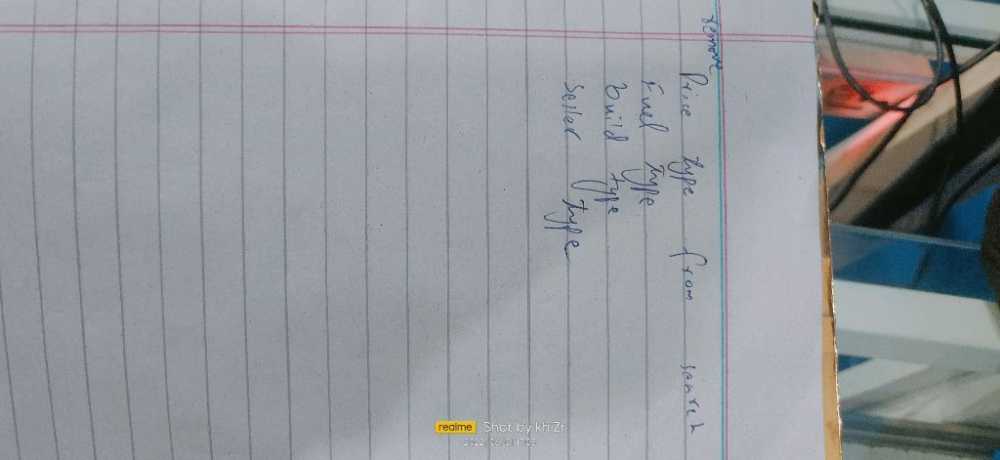 remove
Price type from sanrch
Fuel type
Build type
Seller type
realme Shot by khiZr